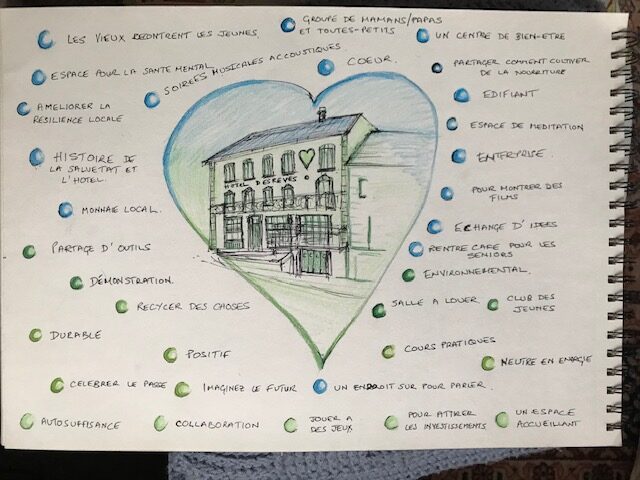 LES VIEUX RECONTRENT LES JEUNES
GROUPE DE MAMANS/PAPAS
ET TOUTES-PETITS
UN CENTRE DE BIEN-ETRE
ESPACE POUR LA SANTE MENTAL
SOIREES MUSICALES ACCOUSTIQUES
COEUR.
PARTAGER COMMENT CULTIVER
DE LA NOURRITURE
AMELIORER LA
RESILIENCE LOCALE
EDIFIANT
ESPACE DE MEDITATION
HISTOIRE DE
LA SALVETAT ET
L'HOTEL.
ENTERPRISE.
HOTEL DES REVES
POUR MONTRER DES
FILMS
MONNAIE LOCAL.
ECHANGE D'IDEES
RENTRE CAFE POUR LES
SENIORS
PARTAGE D'OUTILS
ENVIRONNEMENTAL
DÉMONSTRATION.
RECYCER DES CHOSES
SALLE A LOUER
CLUB DES
JEUNES
DURABLE
POSITIF
COURS PRATIQUES
NEUTRE EN ENERGIE
CELEBRER LE PASSE
IMAGINEZ LE FUTUR
UN ENDROIT SUR POUR PARLER.
AUTOSUFFISANCE
COLLABORATION
JOUER A
DES JEUX
POUR ATTIRER
LES INVESTISSEMENTS
UN ESPACE
ACCUEILLANT